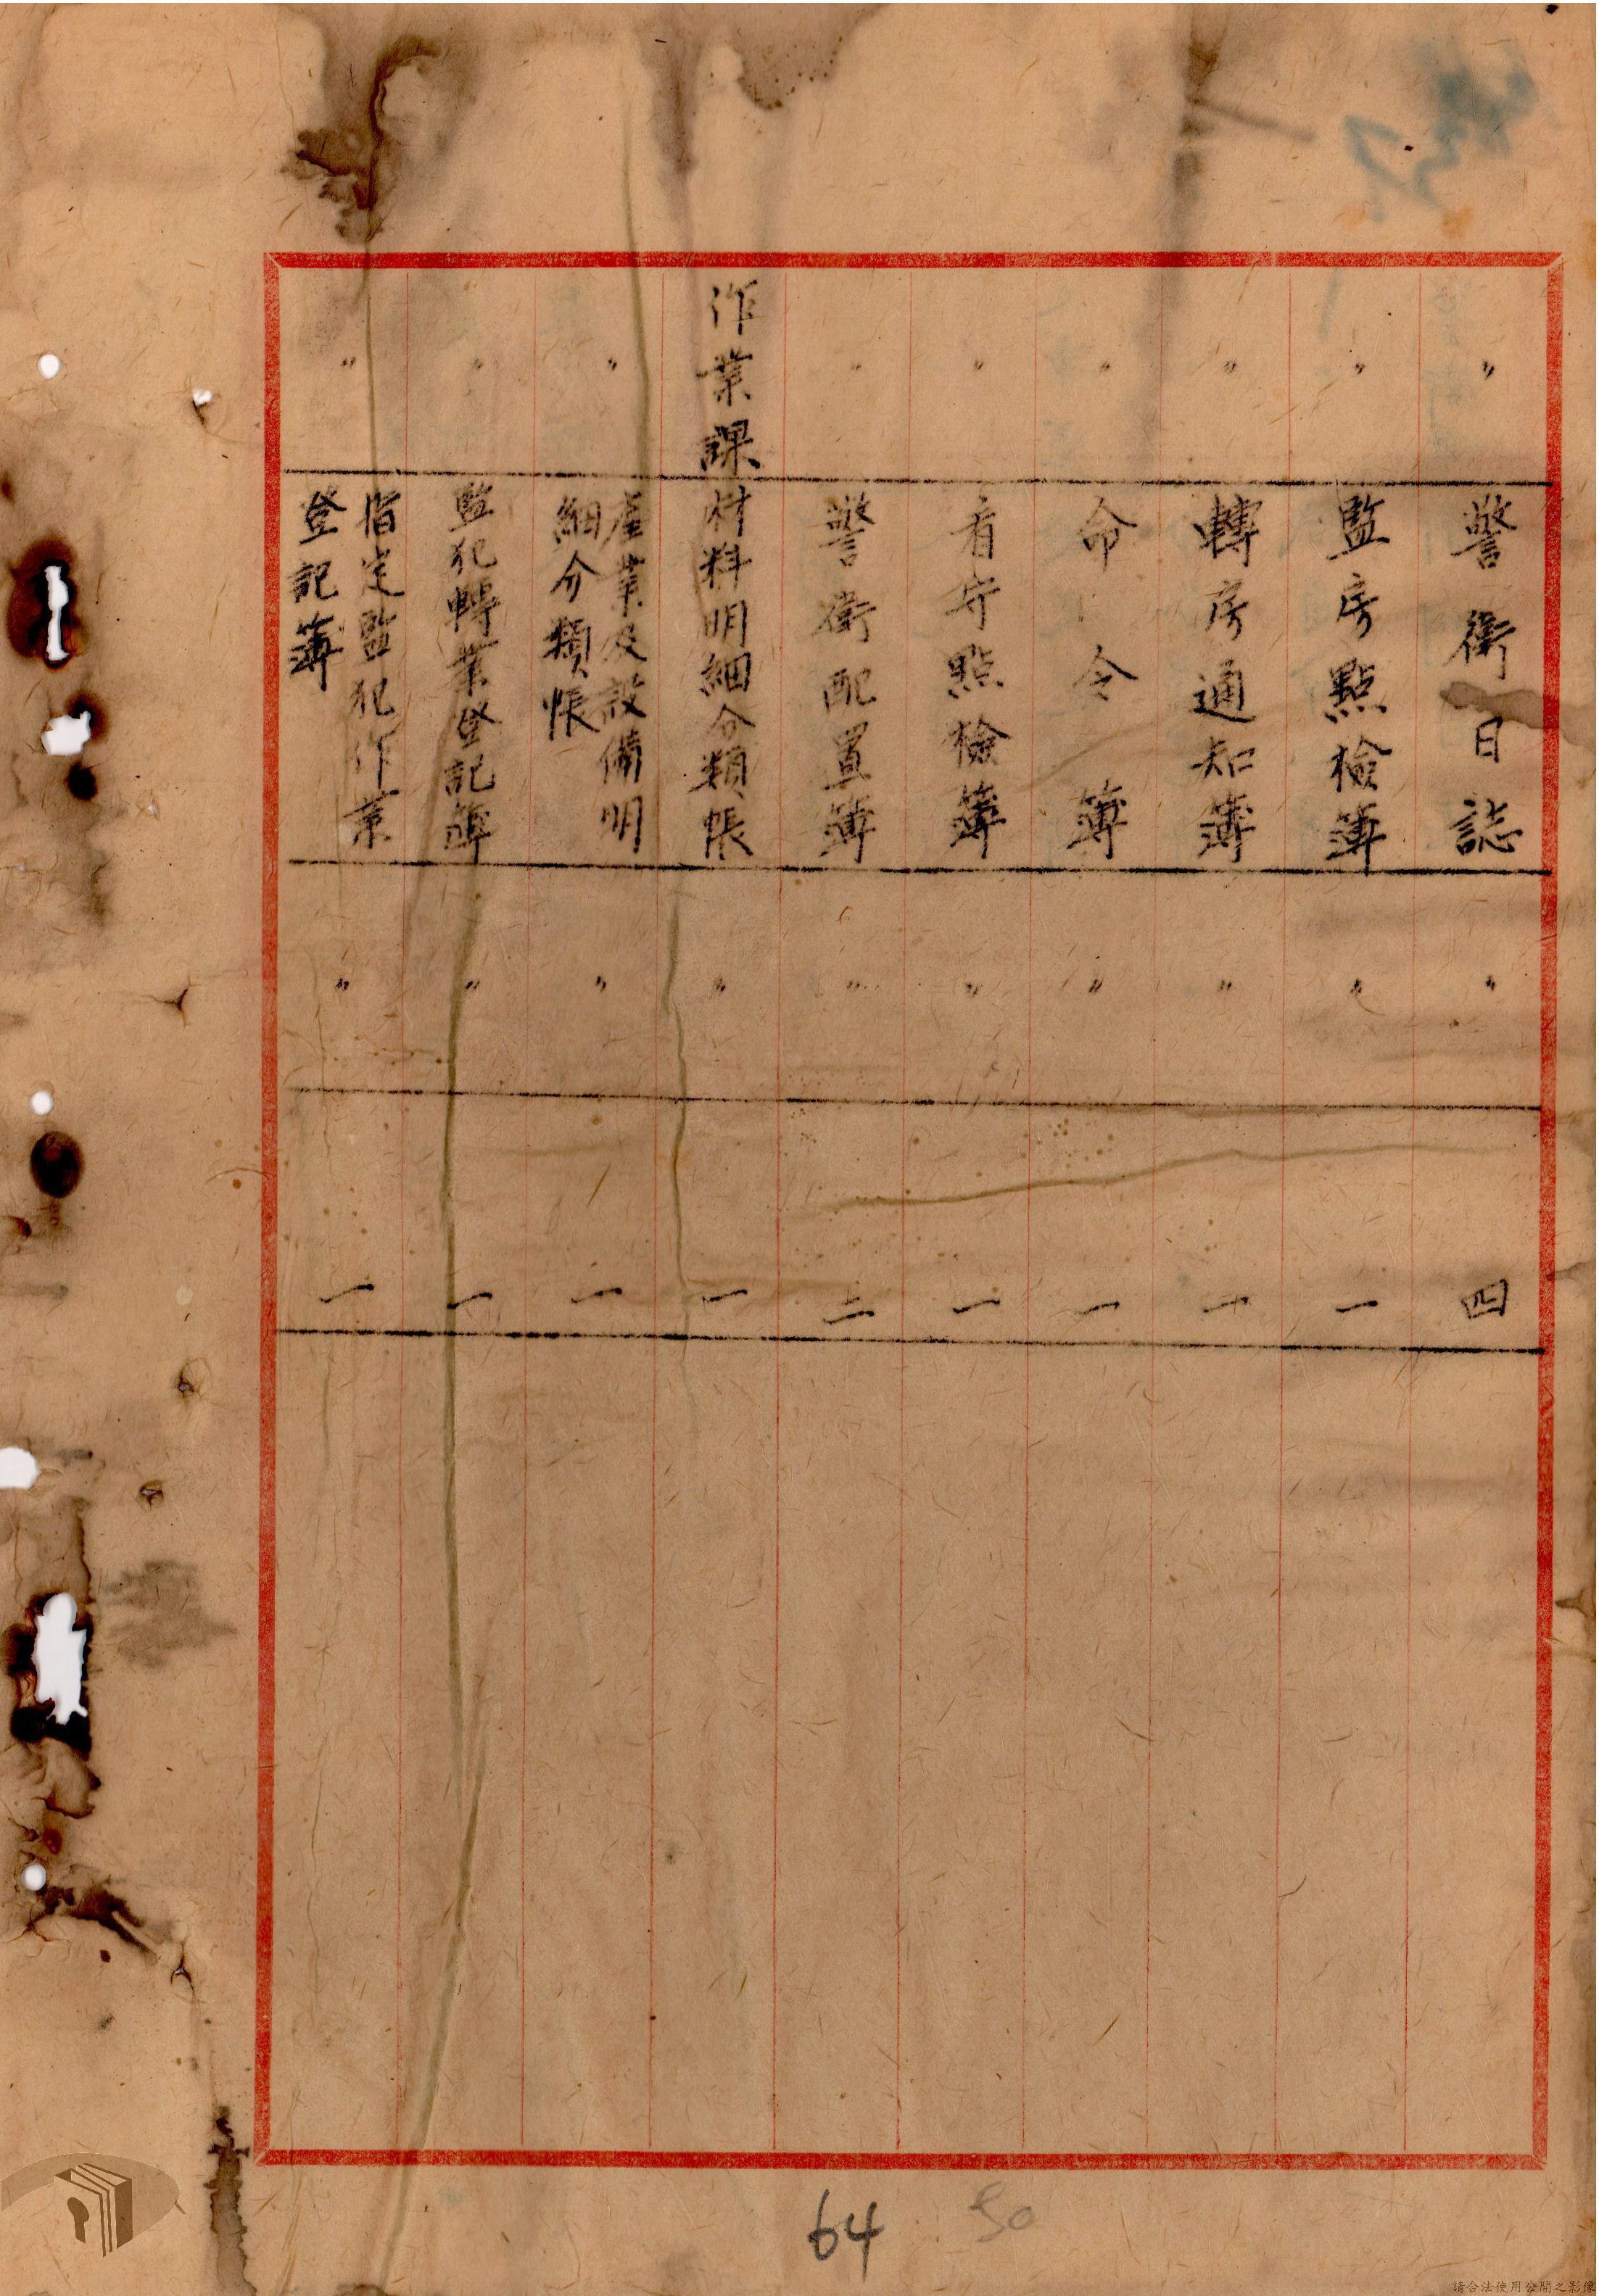 〃 警衛日誌 〃 四
〃 監房點檢簿 〃 一
〃 轉房通知簿 〃 一
〃 命令簿 〃 一
〃 看守點檢簿 〃 一
〃 警衛配置簿 〃 二
作業課 材料明細分類帳 〃 一
〃 產業及設備明
細分類帳 〃 一
〃 監犯轉業登記簿 〃 一
〃 指定監犯作業
登記簿 〃 一
64
50
請合法使用公開之影像